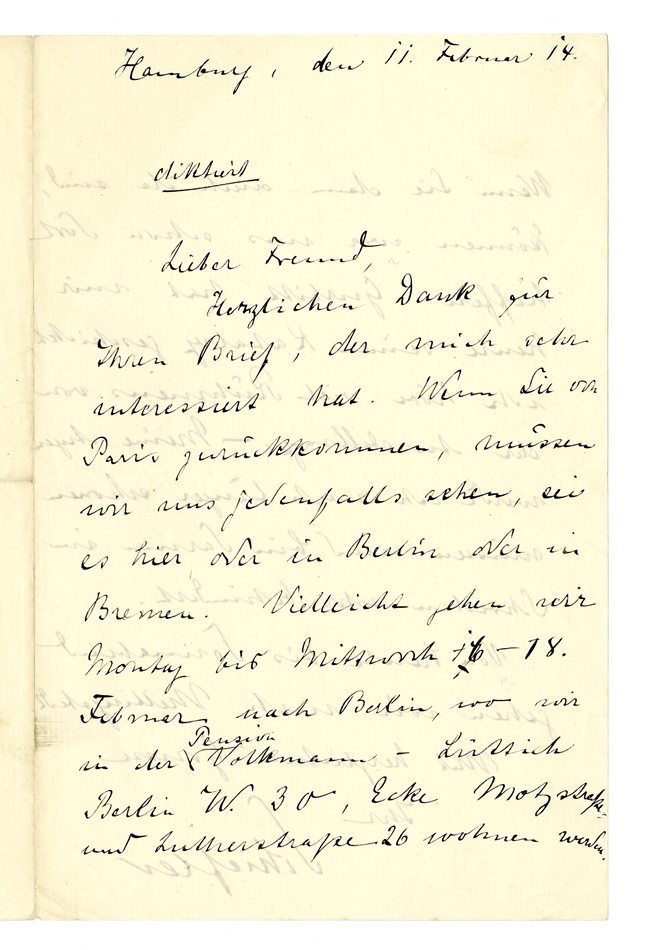 Hamburg, den 11. Februar 14.
diktiert
Lieber Freund,
Herzlichen Dank für
Ihren Brief, der mich sehr
interessiert hat. Wenn Sie von
Paris zurückkommen, müssen
wir uns jedenfalls sehen, sei
es hier oder in Berlin oder in
Bremen. Vielleicht gehen wir
Montag bis Mittwoch 16-18.
Februar nach Berlin, wo wir
Pension
in der Volkmann - Lüttich
Berlin W. 30, Ecke Motzstraße-
und Lutherstraße 26 wohnen werden.